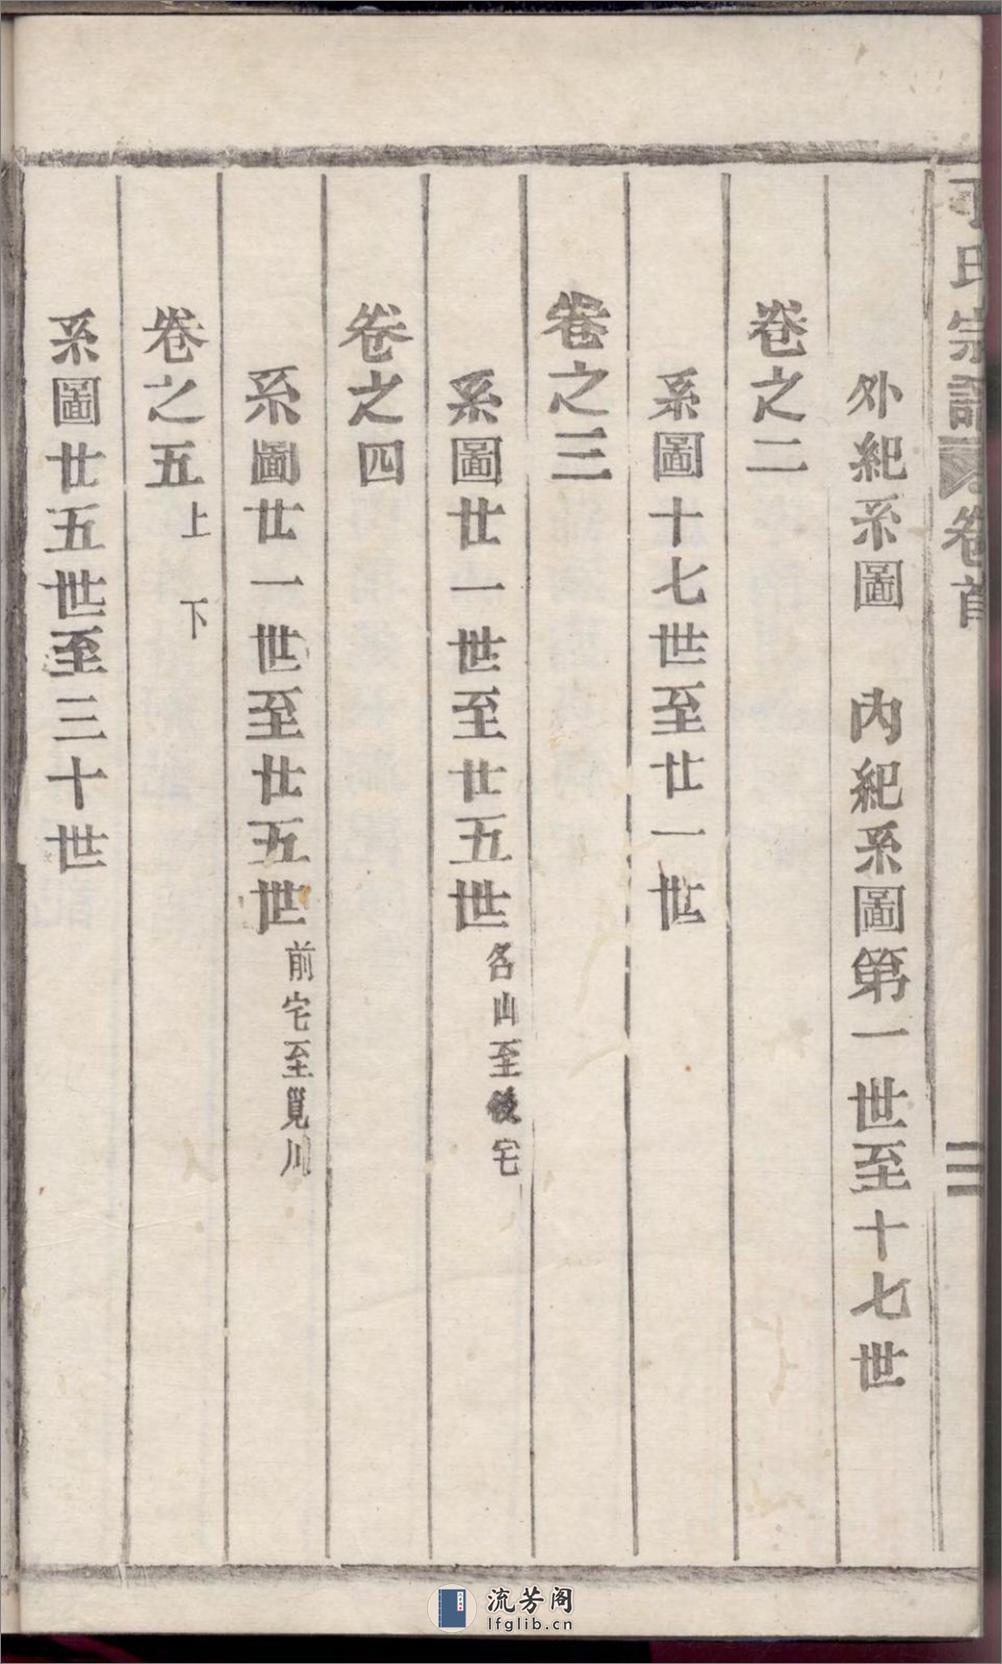 丁氏宗譜 卷首 二
外紀系圖 內紀系圖第一世至十七世
卷之二
系圖十七世至廿一世
卷之三
系圖廿一世至廿五世 名山至後宅
卷之四
系圖廿一世至廿五世 前宅至覓川
卷之五 上 下
系圖廿五世至三十世
流芳阁
lfglib.cn